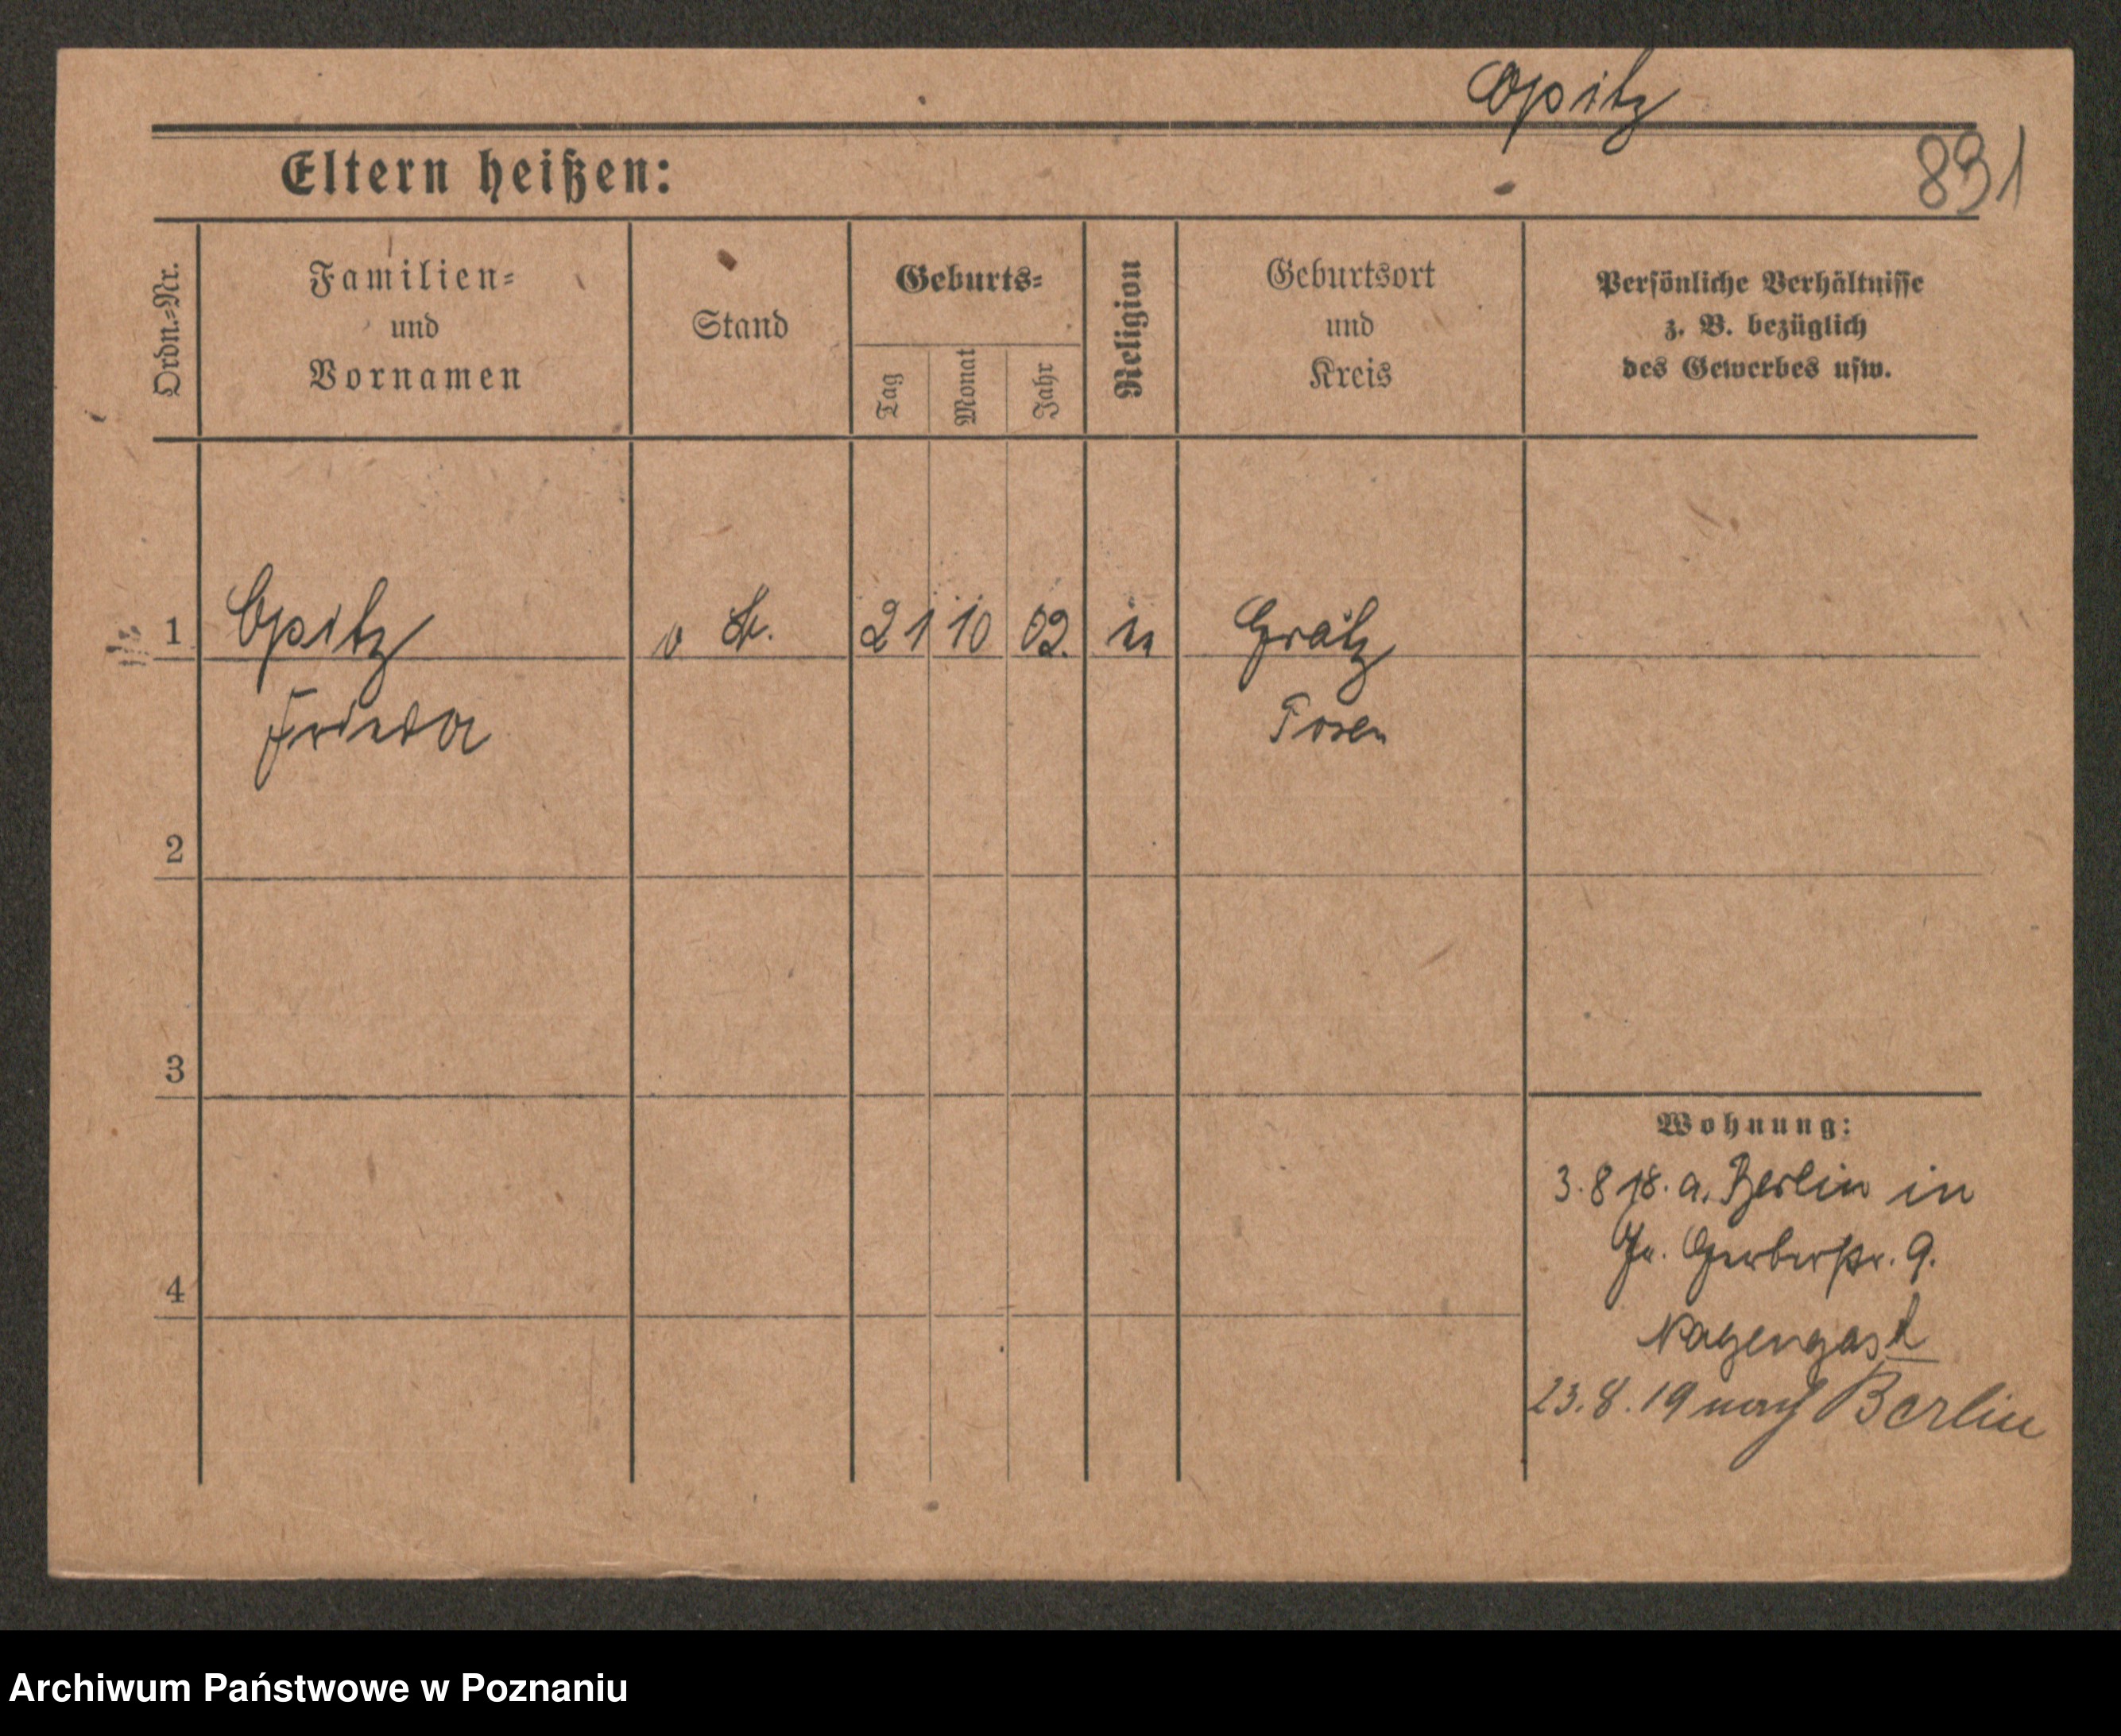 Opitz
891
Eltern heißen:
Ordn.-Nr.
Familien-
und
Vornamen
Stand
Geburts-
Tag
Monat
Jahr
Religion
Geburtsort
und
Kreis
Persönliche Verhältnisse
z. B. bezüglich
des Gewerbes usw.
1
Opitz
o St.
21
10
02.
Grätz
Frieda
Posen
2
3
4
Wohnung:
3.8 18. a. Berlin in
Gr. Gerberstr. 9.
23.8.19 nach Berlin
Archiwum Państwowe w Poznaniu